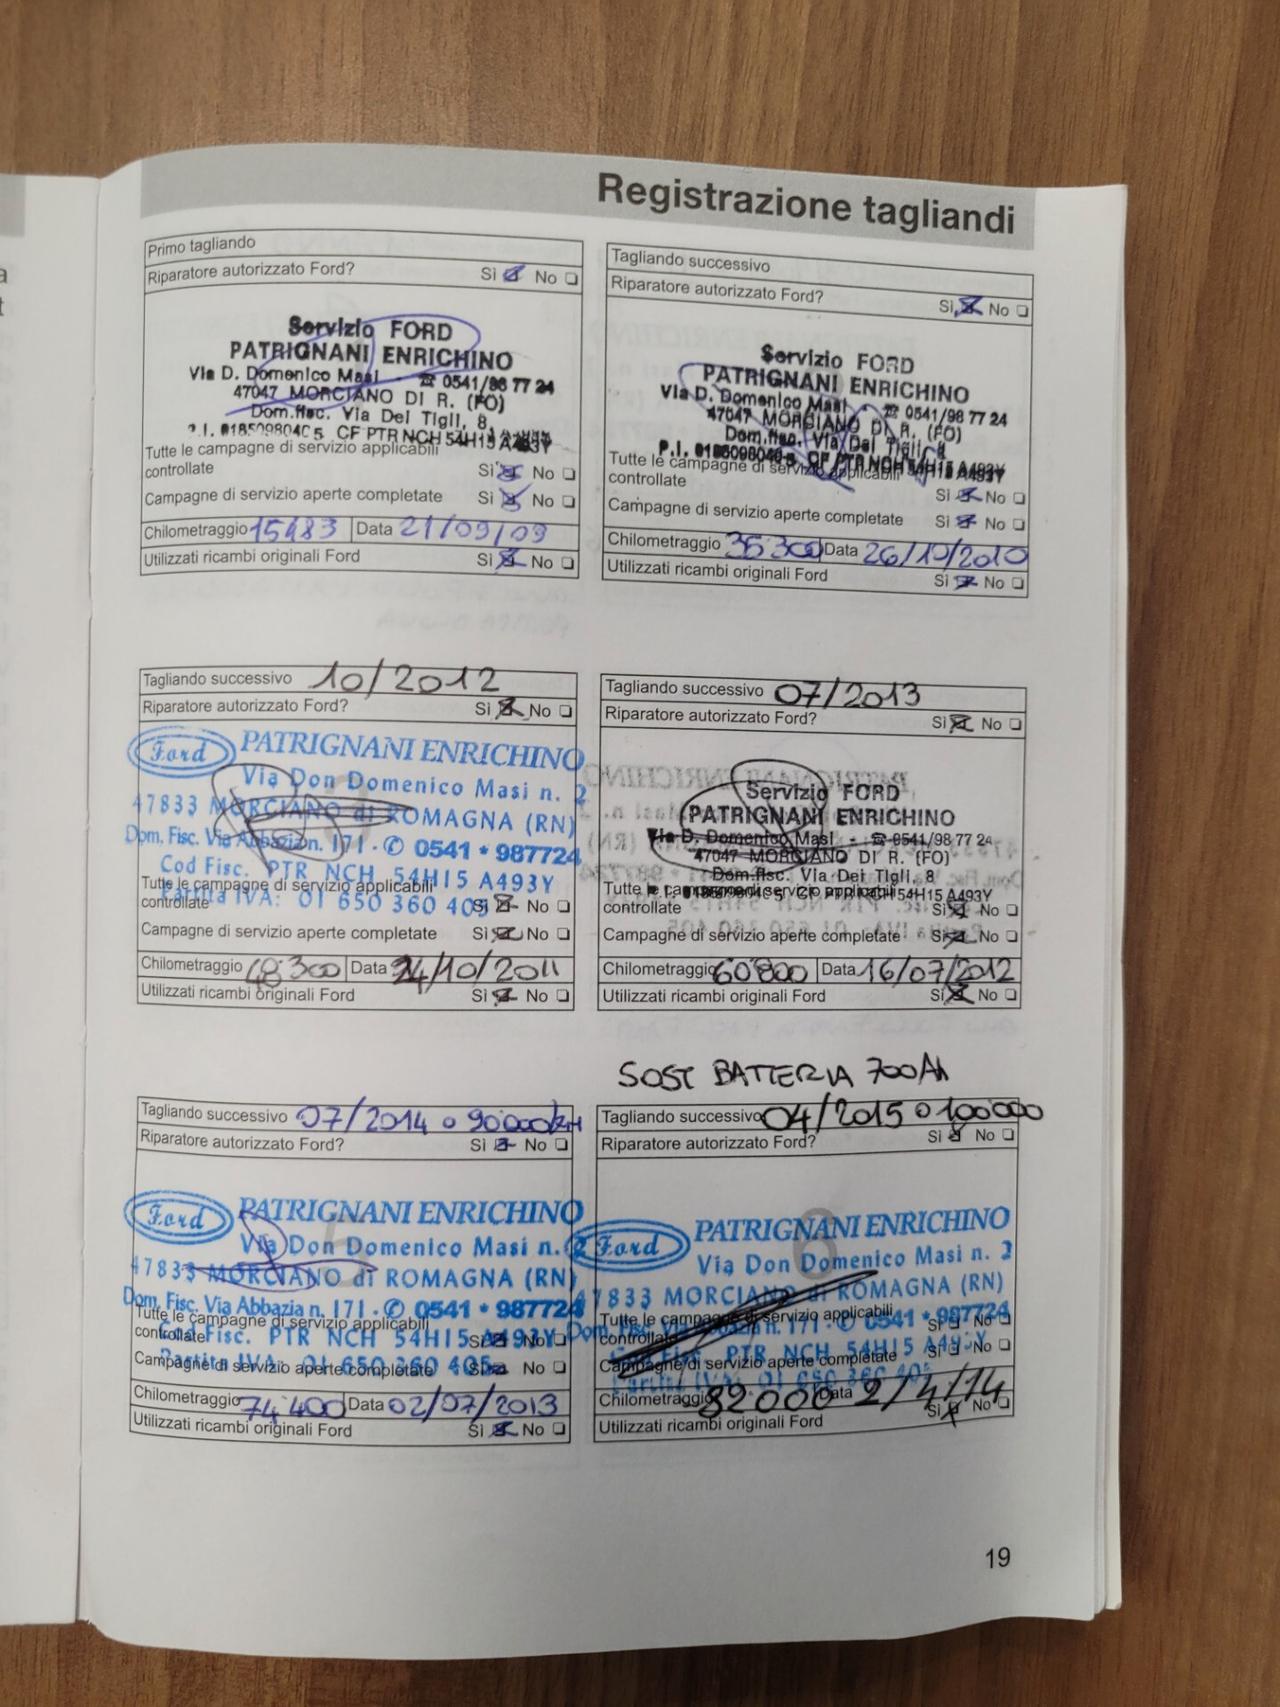 Registrazione tagliandi
Primo tagliando
Riparatore autorizzato Ford? Sì No
Servizio FORD
PATRIGNANI ENRICHINO
Via D. Domenico Masi - ☎ 0541/98 77 24
47047 MORCIANO DI R. (FO)
Dom.fisc. Via Dei Tigli, 8
CF PTR NCH 54H15 A493Y
Tutte le campagne di servizio applicabili
controllate Sì No
Campagne di servizio aperte completate Sì No
Chilometraggio 15483 Data 21/09/09
Utilizzati ricambi originali Ford Sì No
Tagliando successivo
Riparatore autorizzato Ford? Sì No
Servizio FORD
PATRIGNANI ENRICHINO
Via D. Domenico Masi - ☎ 0541/98 77 24
47047 MORCIANO DI R. (FO)
Dom.fisc. Via Dei Tigli, 8
P.I. CF PTR NCH 54H15 A493Y
Tutte le campagne di servizio applicabili
controllate Sì No
Campagne di servizio aperte completate Sì No
Chilometraggio 36300 Data 26/10/2010
Utilizzati ricambi originali Ford Sì No
Tagliando successivo 10/2012
Riparatore autorizzato Ford? Sì No
Ford PATRIGNANI ENRICHINO
Via Don Domenico Masi n. 2
47833 MORCIANO di ROMAGNA (RN)
Dom. Fisc. Via Abbazia n. 171 - ✆ 0541 * 987724
Cod Fisc. PTR NCH 54H15 A493Y
Tutte le campagne di servizio applicabili
Partita IVA: 01 650 360 405
controllate Sì No
Campagne di servizio aperte completate Sì No
Chilometraggio 48300 Data 24/10/2011
Utilizzati ricambi originali Ford Sì No
Tagliando successivo 07/2013
Riparatore autorizzato Ford? Sì No
Servizio FORD
PATRIGNANI ENRICHINO
Via D. Domenico Masi - ☎ 0541/98 77 24
47047 MORCIANO DI R. (FO)
Dom.fisc. Via Dei Tigli, 8
CF PTR NCH 54H15 A493Y
Tutte le campagne di servizio applicabili
controllate Sì No
Campagne di servizio aperte completate Sì No
Chilometraggio 60800 Data 16/07/2012
Utilizzati ricambi originali Ford Sì No
Tagliando successivo 07/2014 o 90000km
Riparatore autorizzato Ford? Sì No
5
Ford PATRIGNANI ENRICHINO
Via Don Domenico Masi n. 2
47833 MORCIANO di ROMAGNA (RN)
Dom. Fisc. Via Abbazia n. 171 - ✆ 0541 * 987724
Tutte le campagne di servizio applicabili
Cod Fisc. PTR NCH 54H15 A493Y
controllate Sì No
Partita IVA: 01 650 360 405
Campagne di servizio aperte completate Sì No
Chilometraggio 74400 Data 02/07/2013
Utilizzati ricambi originali Ford Sì No
SOST BATTERIA 700Ah
Tagliando successivo 04/2015 o 100000
Riparatore autorizzato Ford? Sì No
6
Ford PATRIGNANI ENRICHINO
Via Don Domenico Masi n. 2
47833 MORCIANO di ROMAGNA (RN)
Tutte le campagne di servizio applicabili
Dom. Fisc. Via Abbazia n. 171 - ✆ 0541 * 987724
controllate Sì No
Cod Fisc. PTR NCH 54H15 A493Y
Campagne di servizio aperte completate Sì No
Partita IVA: 01 650 360 405
Chilometraggio 82000 Data 2/4/14
Utilizzati ricambi originali Ford Sì No
19